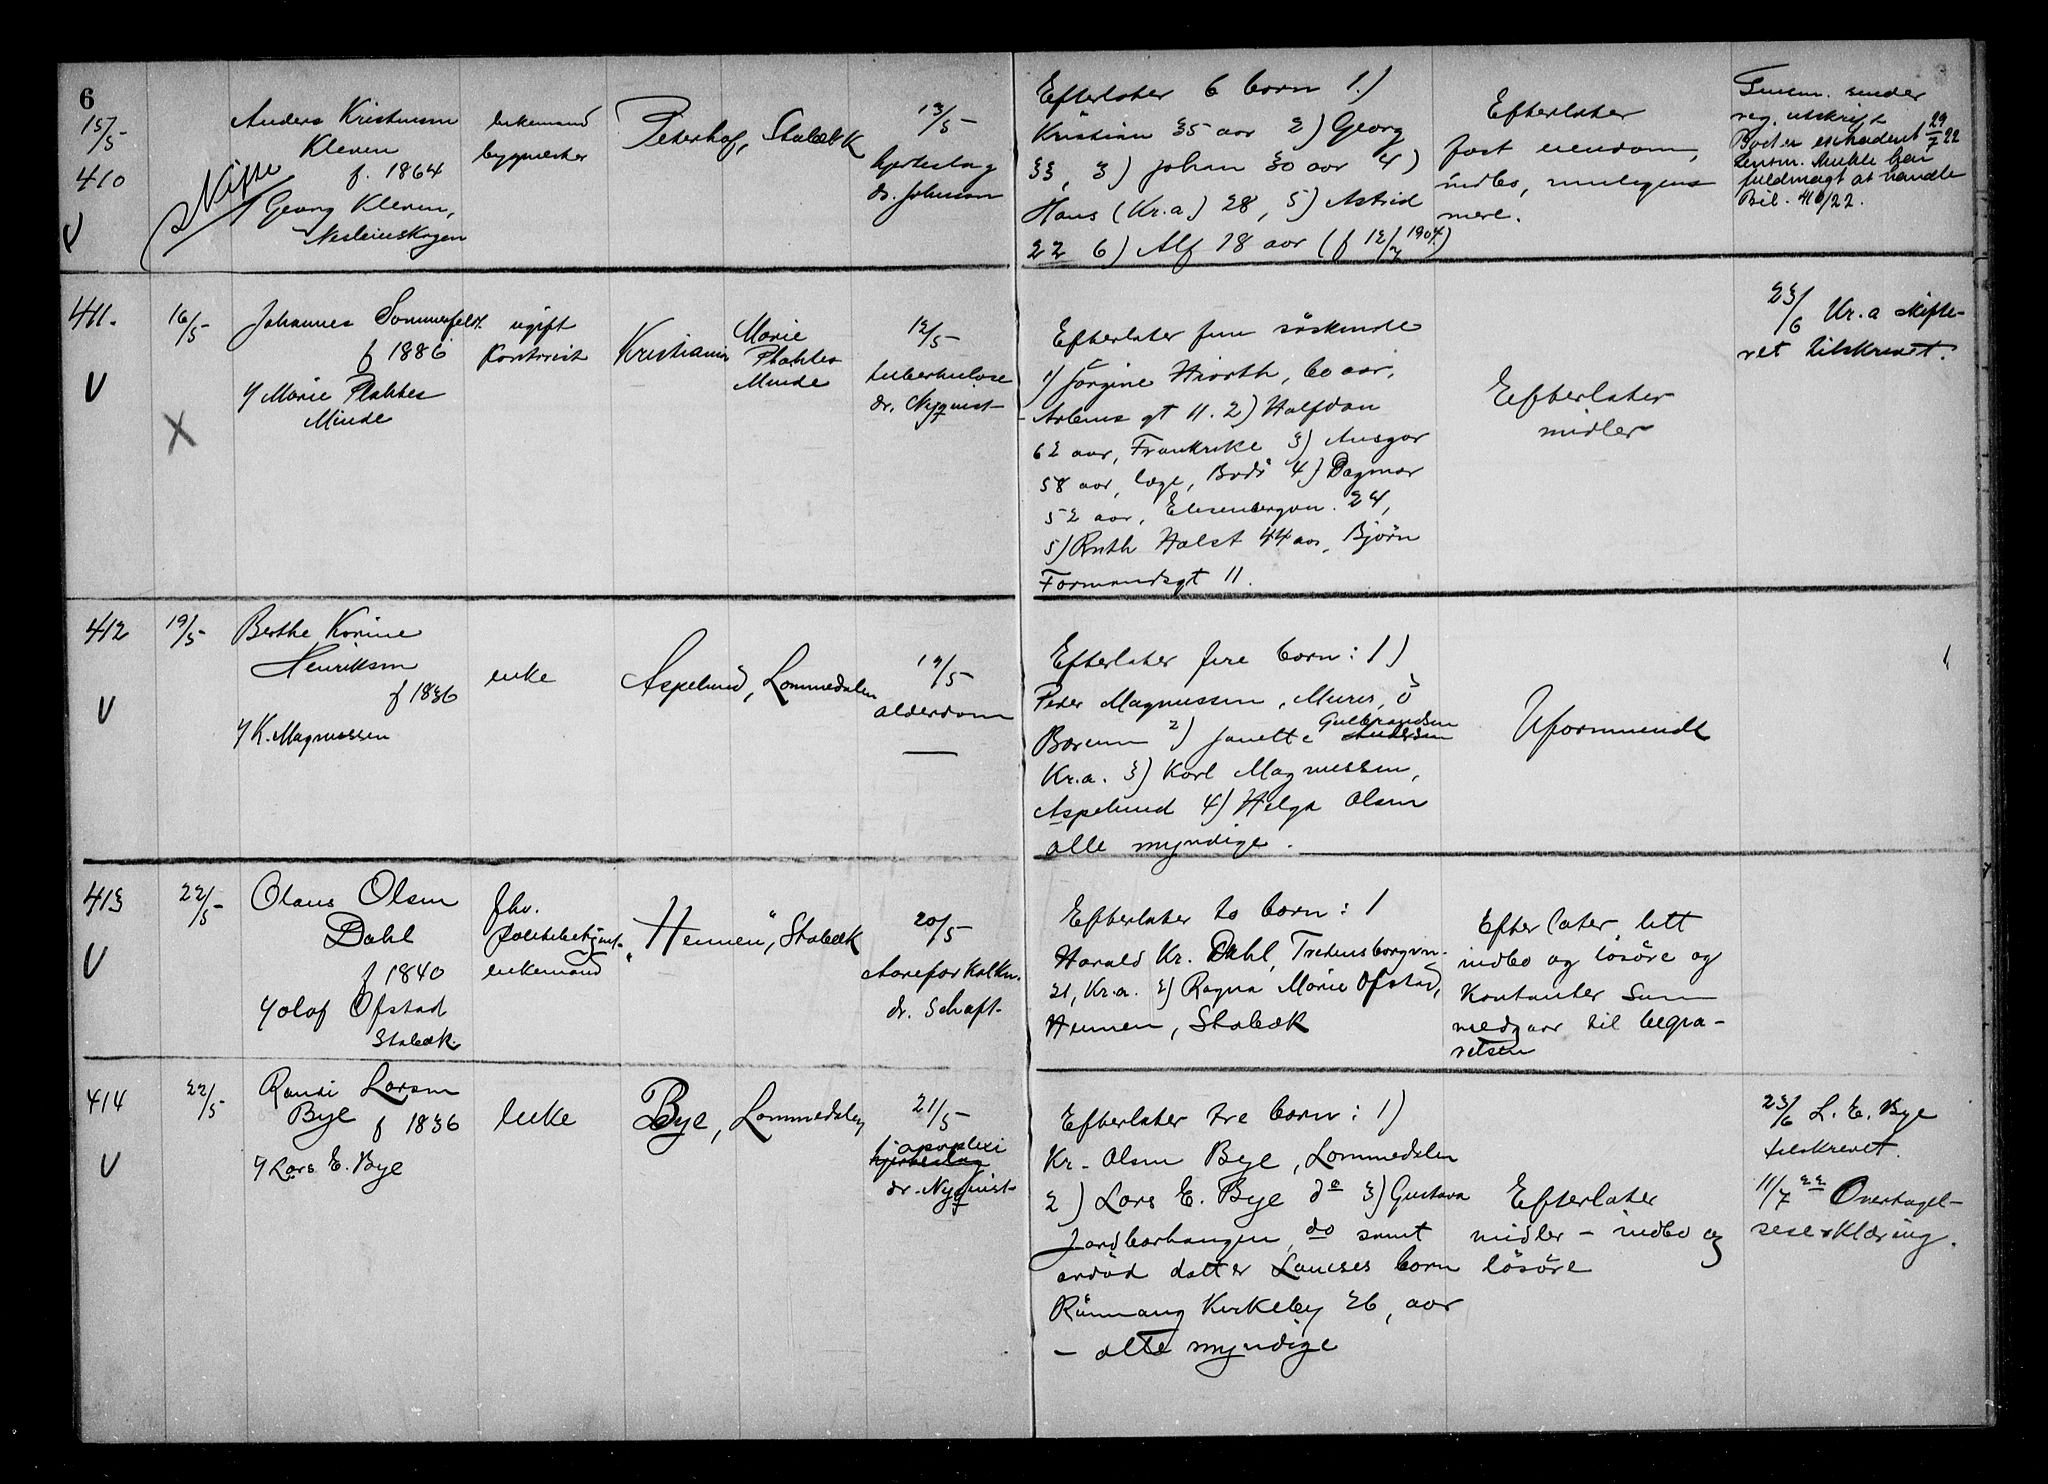 6
15/5
410
V
Skifte
Anders Kristensen
Kleven
f. 1864
Georg Kleven,
enkemand
bygmester
Peterhof, Stabæk
13/5
hjerteslag
dr. Johnsen
Efterlater 6 born 1.)
Kristian 35 aar 2) Georg
33, 3) Johan 30 aar 4)
Hans (Kr.a) 28, 5) Astrid
22 6) Alf 18 aar (f 12/7 1904)
Efterlater
fast eiendom,
indbo, muligens
mere.
reg. utskrift
Boet er extradert 29/7 22
Lensm. har
fuldmagt at handle
Bil. 410/22.
411.
V
16/5
X
Johannes Sommerfeldt
f 1886
v/ Marie Plahtes
Minde
ugift
kontorist
Kristiania
Marie
Plahtes
Minde
12/5
tuberkulose
dr. Nyquist
Efterlater fem söskende
1) Jörgine Hiorth, 60 aar,
Arbins gt 11. 2) Halfdan
62 aar, Frankrike 3) Ansgar
58 aar, læge, Bodö 4) Dagmar
52 aar, Elisenbergvn. 24,
5) Ruth Holst 44 aar, Bjørn
Formandsgt 11.
Efterlater
midler
23/6 Kr.a skifte-
ret tilskrevet.
412
V
19/5
Berthe Korine
Henriksen
f 1836
v/ K. Magnussen
enke
Aspelund, Lommedalen
19/5
alderdom
—
Efterlater fire born: 1)
Peder Magnussen, Ö
Bærum 2) Janette Gulbrandsen
Andersen
Kr.a. 3) Karl Magnussen,
Aspelund 4) Helga Olsen
alle myndige.
Uformuende
413
V
22/5
Olaus Olsen
Dahl
f 1840
v/ Olaf Ofstad
Stabæk.
fhv.
politibetjent
enkemand
"Heimen", Stabæk
20/5
Aareforkalkn.
dr. Schaft
Efterlater to born: 1
Harald Kr. Dahl, Fredensborgvn.
21, Kr.a. 2) Ragna Marie Ofstad,
Heimen, Stabæk
Efterlater litt
indbo og lösöre og
kontanter som
medgaar til begra-
velsen
414
V
22/5
Randi Larsen
Bye f 1836
v/ Lars E. Bye
enke
Bye, Lommedalen
21/5
apoplexi
hjerteslag
dr. Nyquist
Efterlater tre born: 1)
Kr. Olsen Bye, Lommedalen
2) Lars E. Bye do 3) Gustava
Jordbærhaugen do samt
avdöd datter Louises born
Kirkeby 26, aar
— alle myndige
Efterlater
midler - indbo og
lösöre
23/6 L. E. Bye
tilskrevet.
11/7 22 Overtagel-
seserklæring.